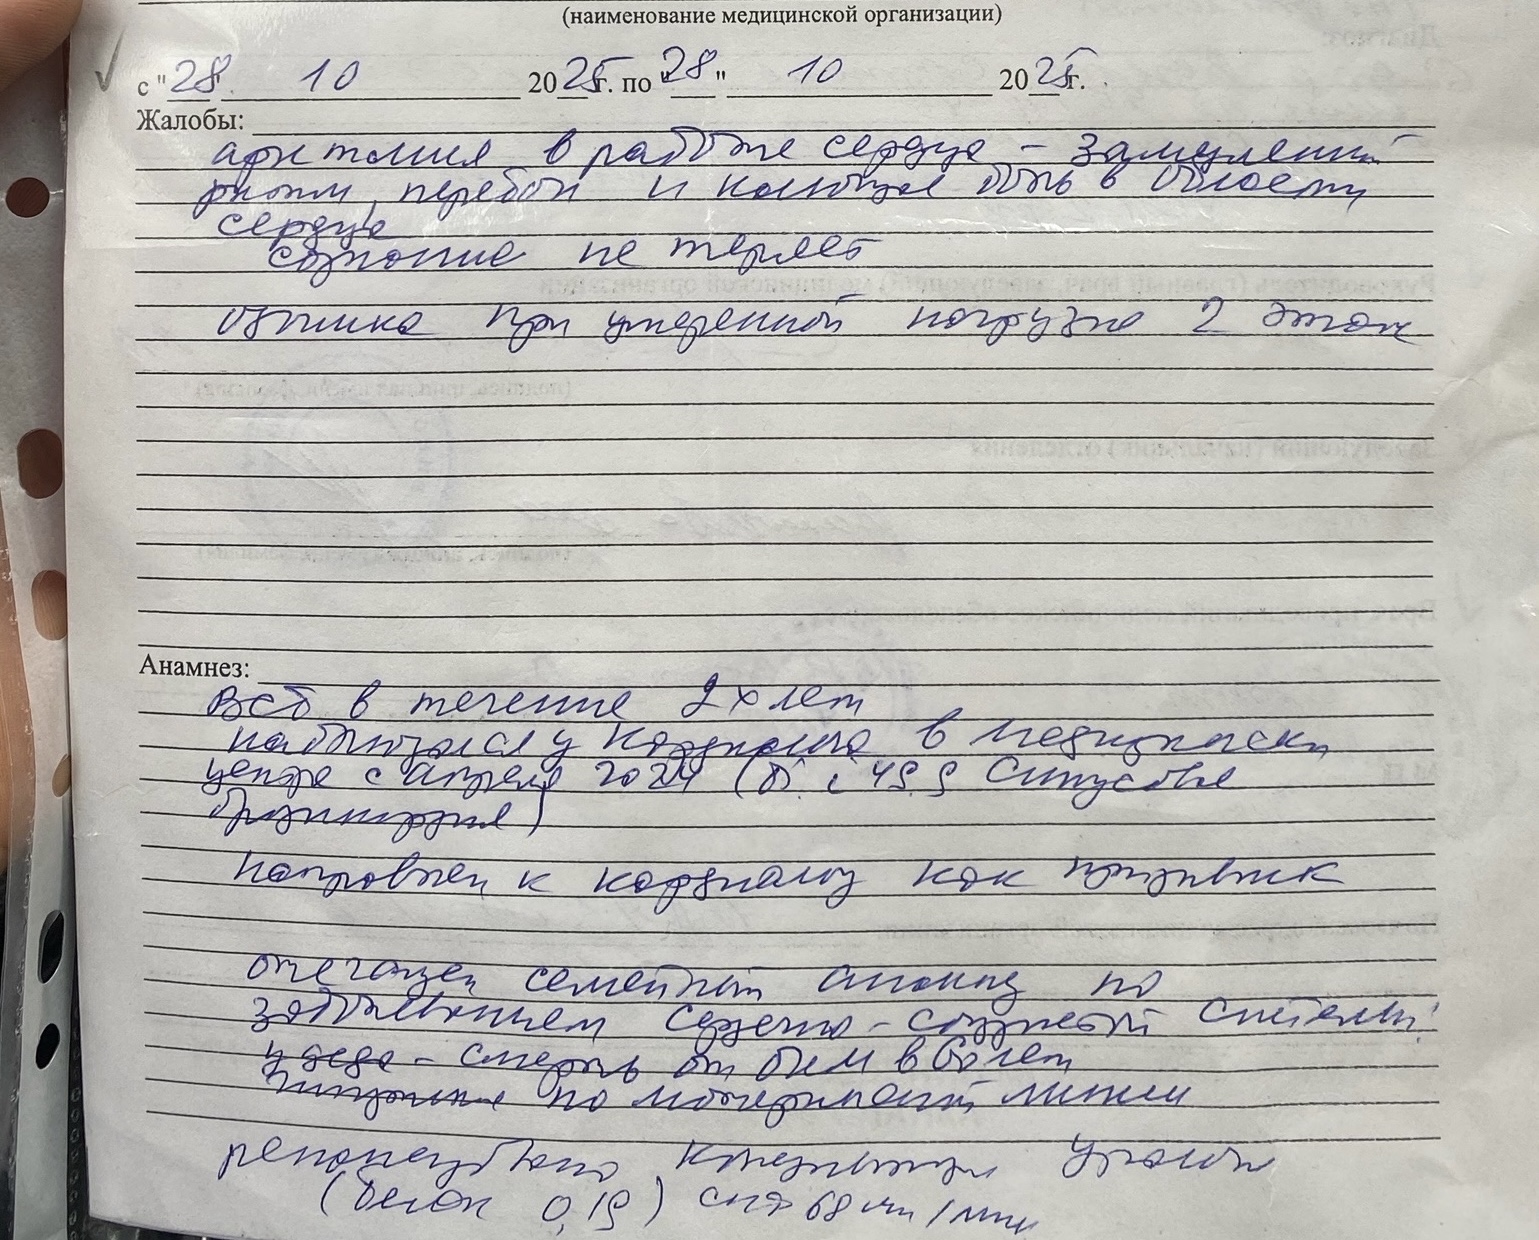 (наименование медицинской организации)
с "28" 10 2025г. по "28" 10 2025г.
Жалобы:
аритмия в работе сердца - замедленный
ритм, перебои и колющая боль в области
сердца
сознание не теряет
одышка при умеренной нагрузке 2 этаж
Анамнез:
ВСД в течение 2х лет
наблюдался у кардиолога в медицинском
центре с апреля 2024 (синусовая
брадикардия)
направлен к кардиологу как призывник
отягощен семейный анамнез по
заболеваниям сердечно-сосудистой системы
у деда - смерть от в 60 лет
по материнской линии
рекомендовано консультация уролога
(белок 0,19) скф 68 мл/мин